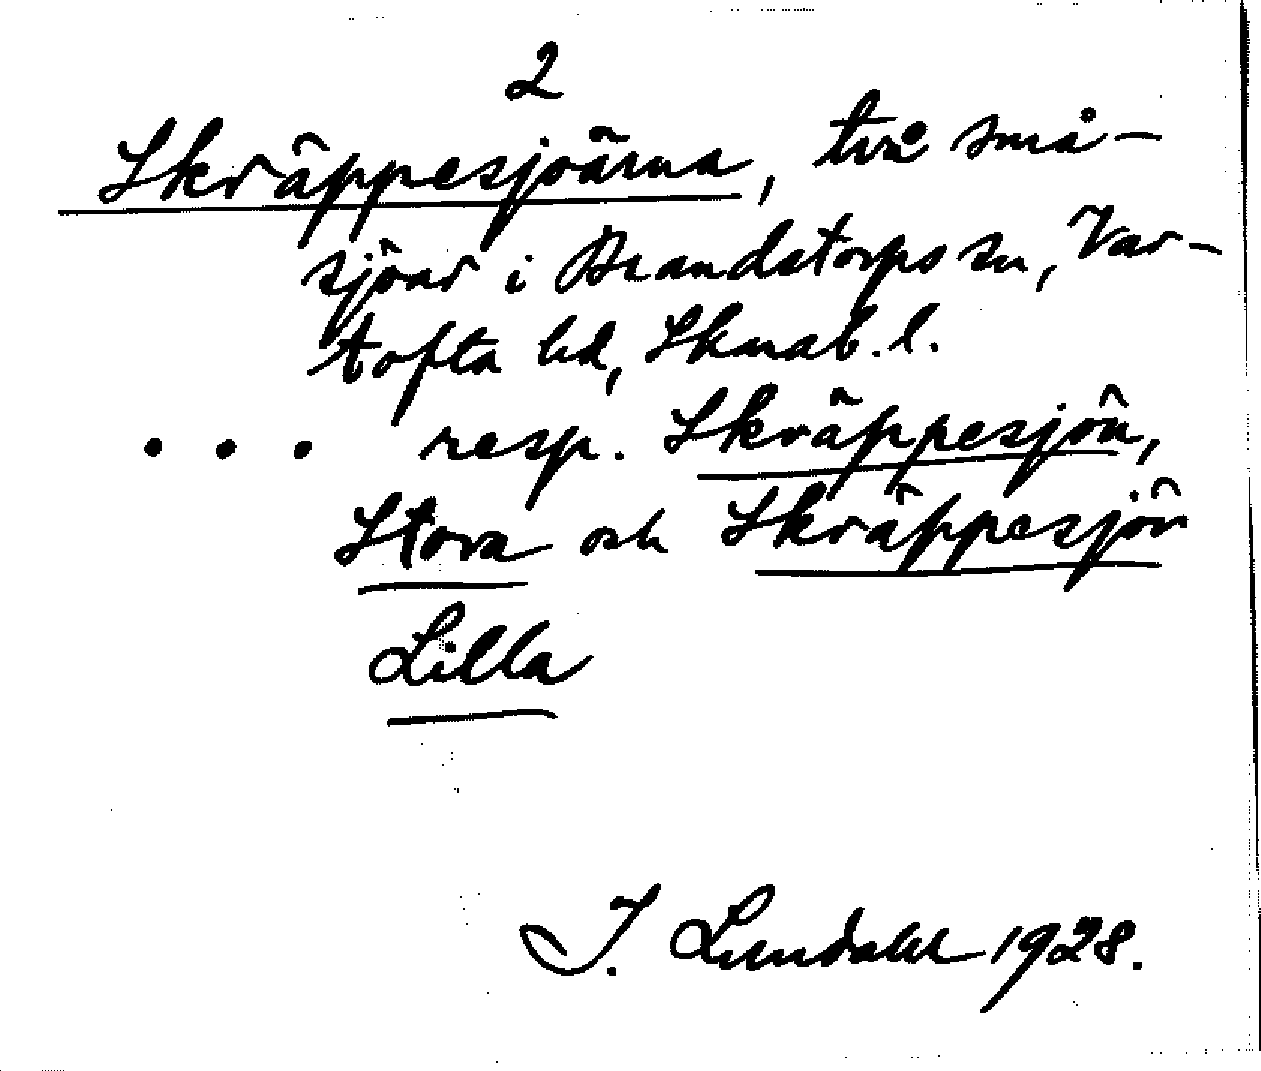 2
Skräppesjöärna, två små-
sjöar i Brandstorps sn, Var-
tofta hd, Skarab. l.
... resp. Skräppesjön,
Stora och Skräppesjön
Lilla
I. Lundahl 1928.